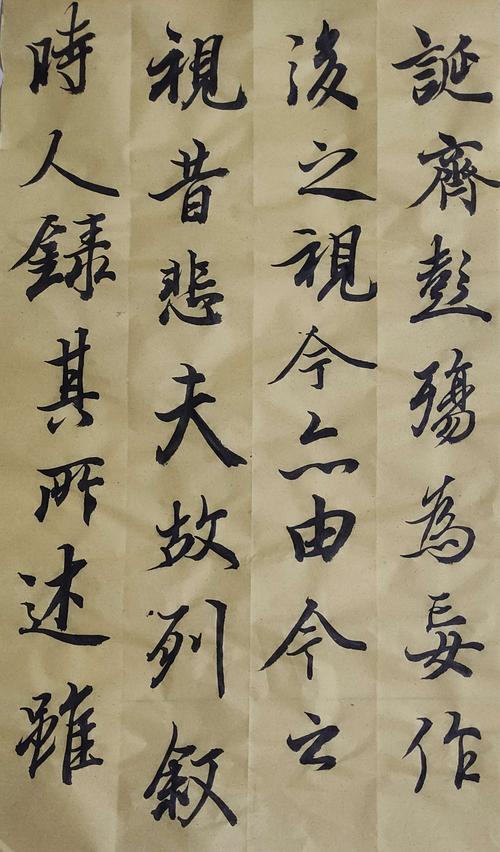 誕齊彭殤為妄作
後之視今亦由今之
視昔悲夫故列叙
時人錄其所述雖